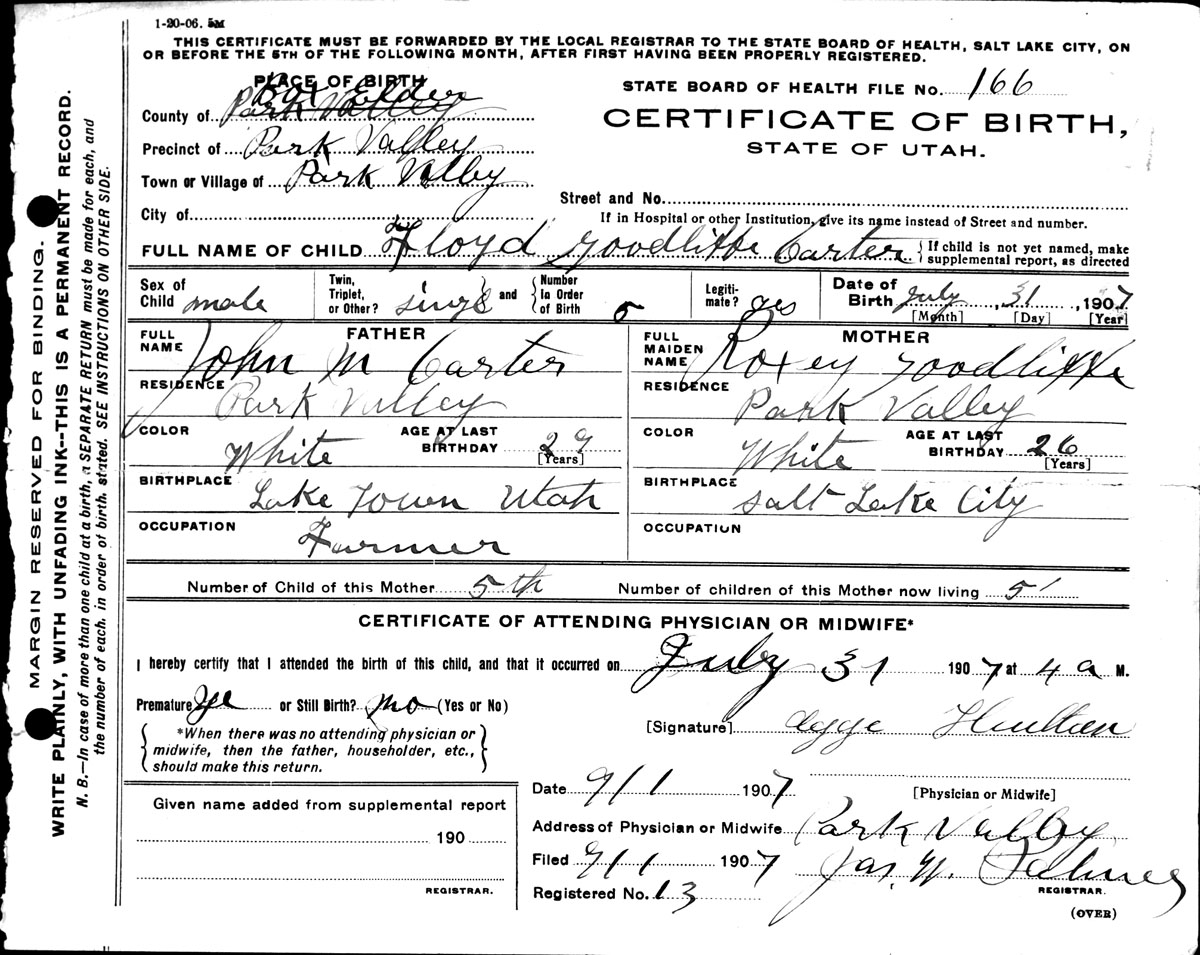 1-20-06. 5M
THIS CERTIFICATE MUST BE FORWARDED BY THE LOCAL REGISTRAR TO THE STATE BOARD OF HEALTH, SALT LAKE CITY, ON
OR BEFORE THE 5TH OF THE FOLLOWING MONTH, AFTER FIRST HAVING BEEN PROPERLY REGISTERED.
PLACE OF BIRTH
STATE BOARD OF HEALTH FILE No. 166
Box Elder
County of Park Valley
CERTIFICATE OF BIRTH,
Precinct of Park Valley
STATE OF UTAH.
Town or Village of Park Valley
Street and No.
City of
If in Hospital or other Institution, give its name instead of Street and number.
FULL NAME OF CHILD Floyd Goodliffe Carter { If child is not yet named, make
supplemental report, as directed
Sex of Child male Twin, Triplet, or Other? single and { Number In Order of Birth 5 Legiti-mate? yes Date of Birth July 31, 1907
[Month] [Day] [Year]
FATHER
FULL NAME John M Carter
RESIDENCE Park Valley
COLOR White AGE AT LAST BIRTHDAY 29
[Years]
BIRTHPLACE Lake Town Utah
OCCUPATION Farmer
MOTHER
FULL MAIDEN NAME Roxey Goodliffe
RESIDENCE Park Valley
COLOR White AGE AT LAST BIRTHDAY 26
[Years]
BIRTHPLACE Salt Lake City
OCCUPATION
Number of Child of this Mother 5th Number of children of this Mother now living 5
CERTIFICATE OF ATTENDING PHYSICIAN OR MIDWIFE*
I hereby certify that I attended the birth of this child, and that it occurred on July 31 1907 at 4 a M.
Premature or Still Birth? no (Yes or No)
[Signature]
{ *When there was no attending physician or
midwife, then the father, householder, etc.,
should make this return. }
Date 9/1 1907
[Physician or Midwife]
Given name added from supplemental report
190
REGISTRAR.
Address of Physician or Midwife Park Valley
Filed 9/1 1907 Jas. W.
REGISTRAR.
Registered No. 13
(OVER)
MARGIN RESERVED FOR BINDING.
WRITE PLAINLY, WITH UNFADING INK--THIS IS A PERMANENT RECORD.
N. B.—In case of more than one child at a birth, a SEPARATE RETURN must be made for each, and
the number of each, in order of birth, stated. SEE INSTRUCTIONS ON OTHER SIDE.